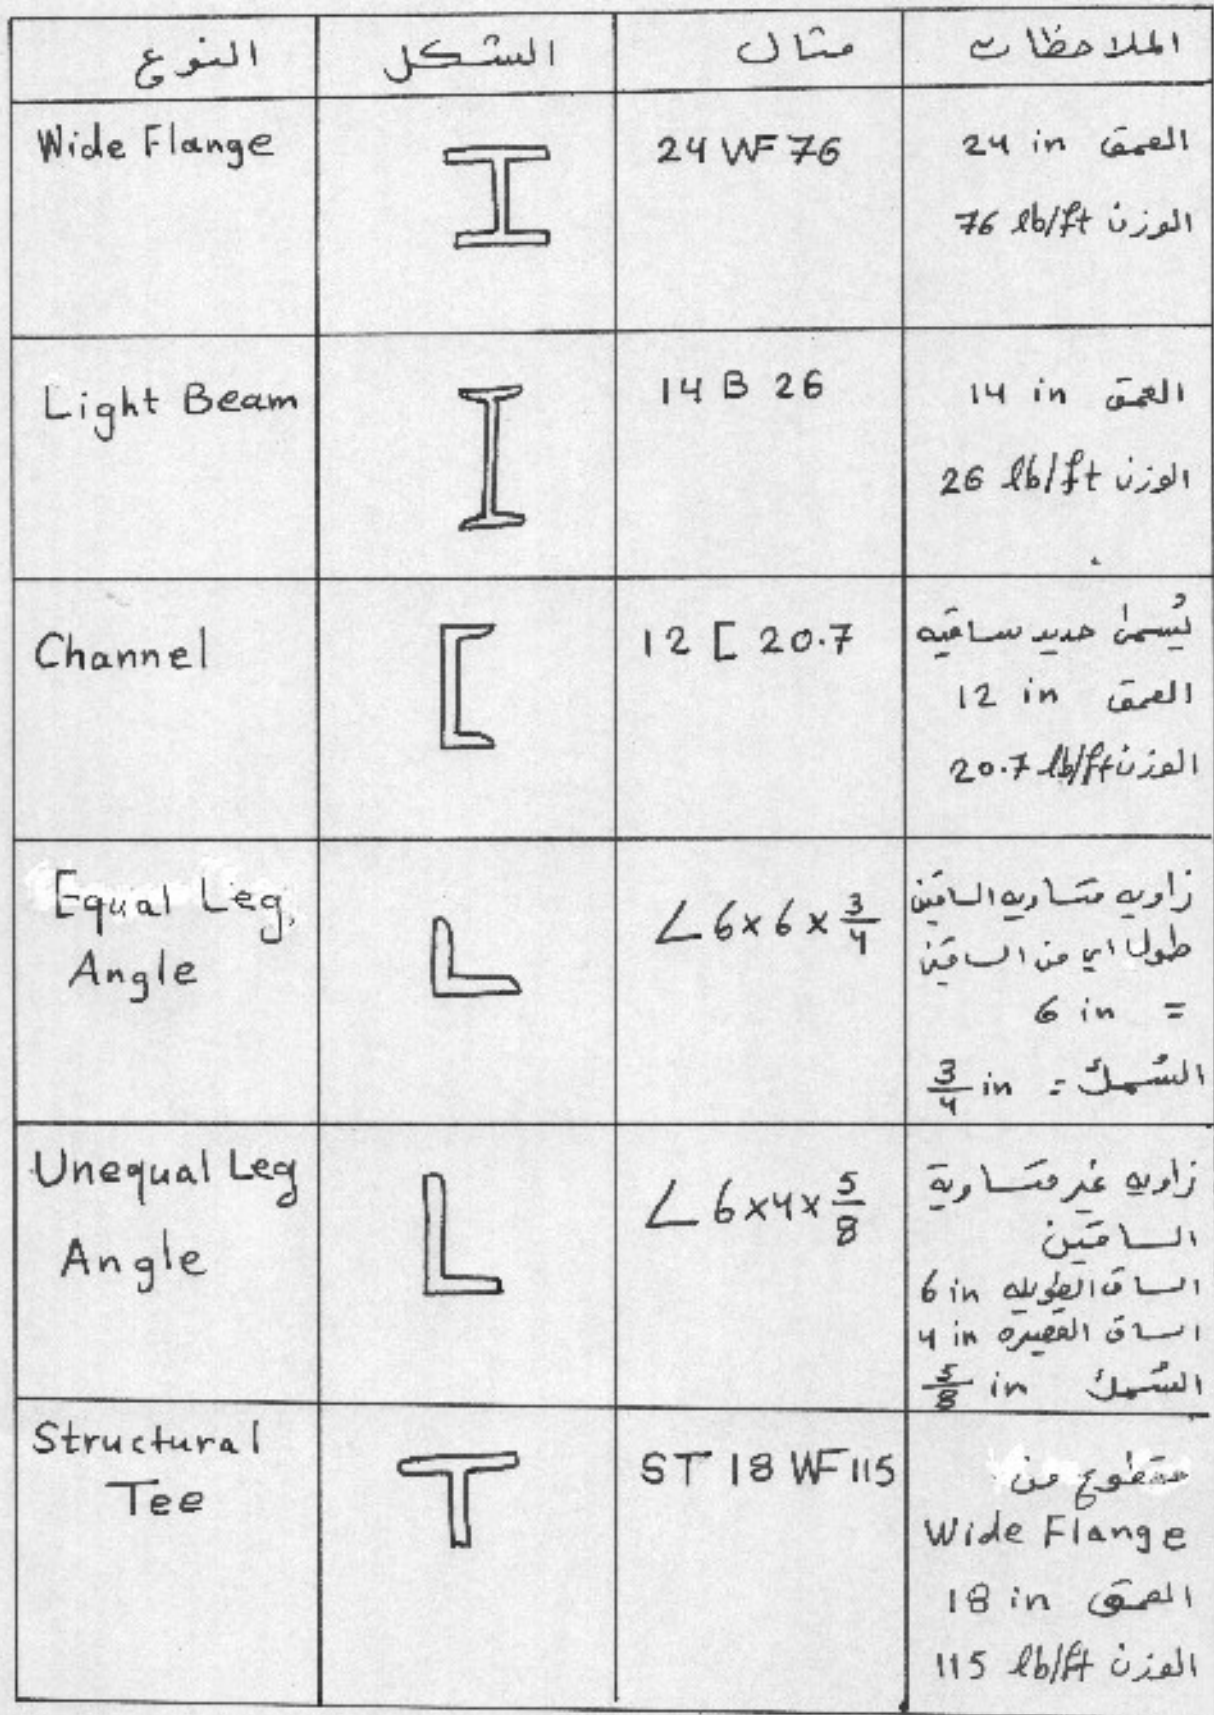 النوع الشكل مثال الملاحظات
Wide Flange 24 WF 76 العمق 24 in
الوزن 76 lb/ft
Light Beam 14 B 26 العمق 14 in
الوزن 26 lb/ft
Channel 12 [ 20.7 يُسمى حديد ساقيه
العمق 12 in
الوزن 20.7 lb/ft
Equal Leg, ∠ 6 x 6 x 3/4 زاويه متساويه الساقين
Angle طول اي من الساقين
= 6 in
السُمك = 3/4 in
Unequal Leg ∠ 6 x 4 x 5/8 زاويه غير متساوية
Angle الساقين
الساق الطويله 6 in
الساق القصيره 4 in
السُمك 5/8 in
Structural ST 18 WF 115 مقطوع من
Tee Wide Flange
العمق 18 in
الوزن 115 lb/ft